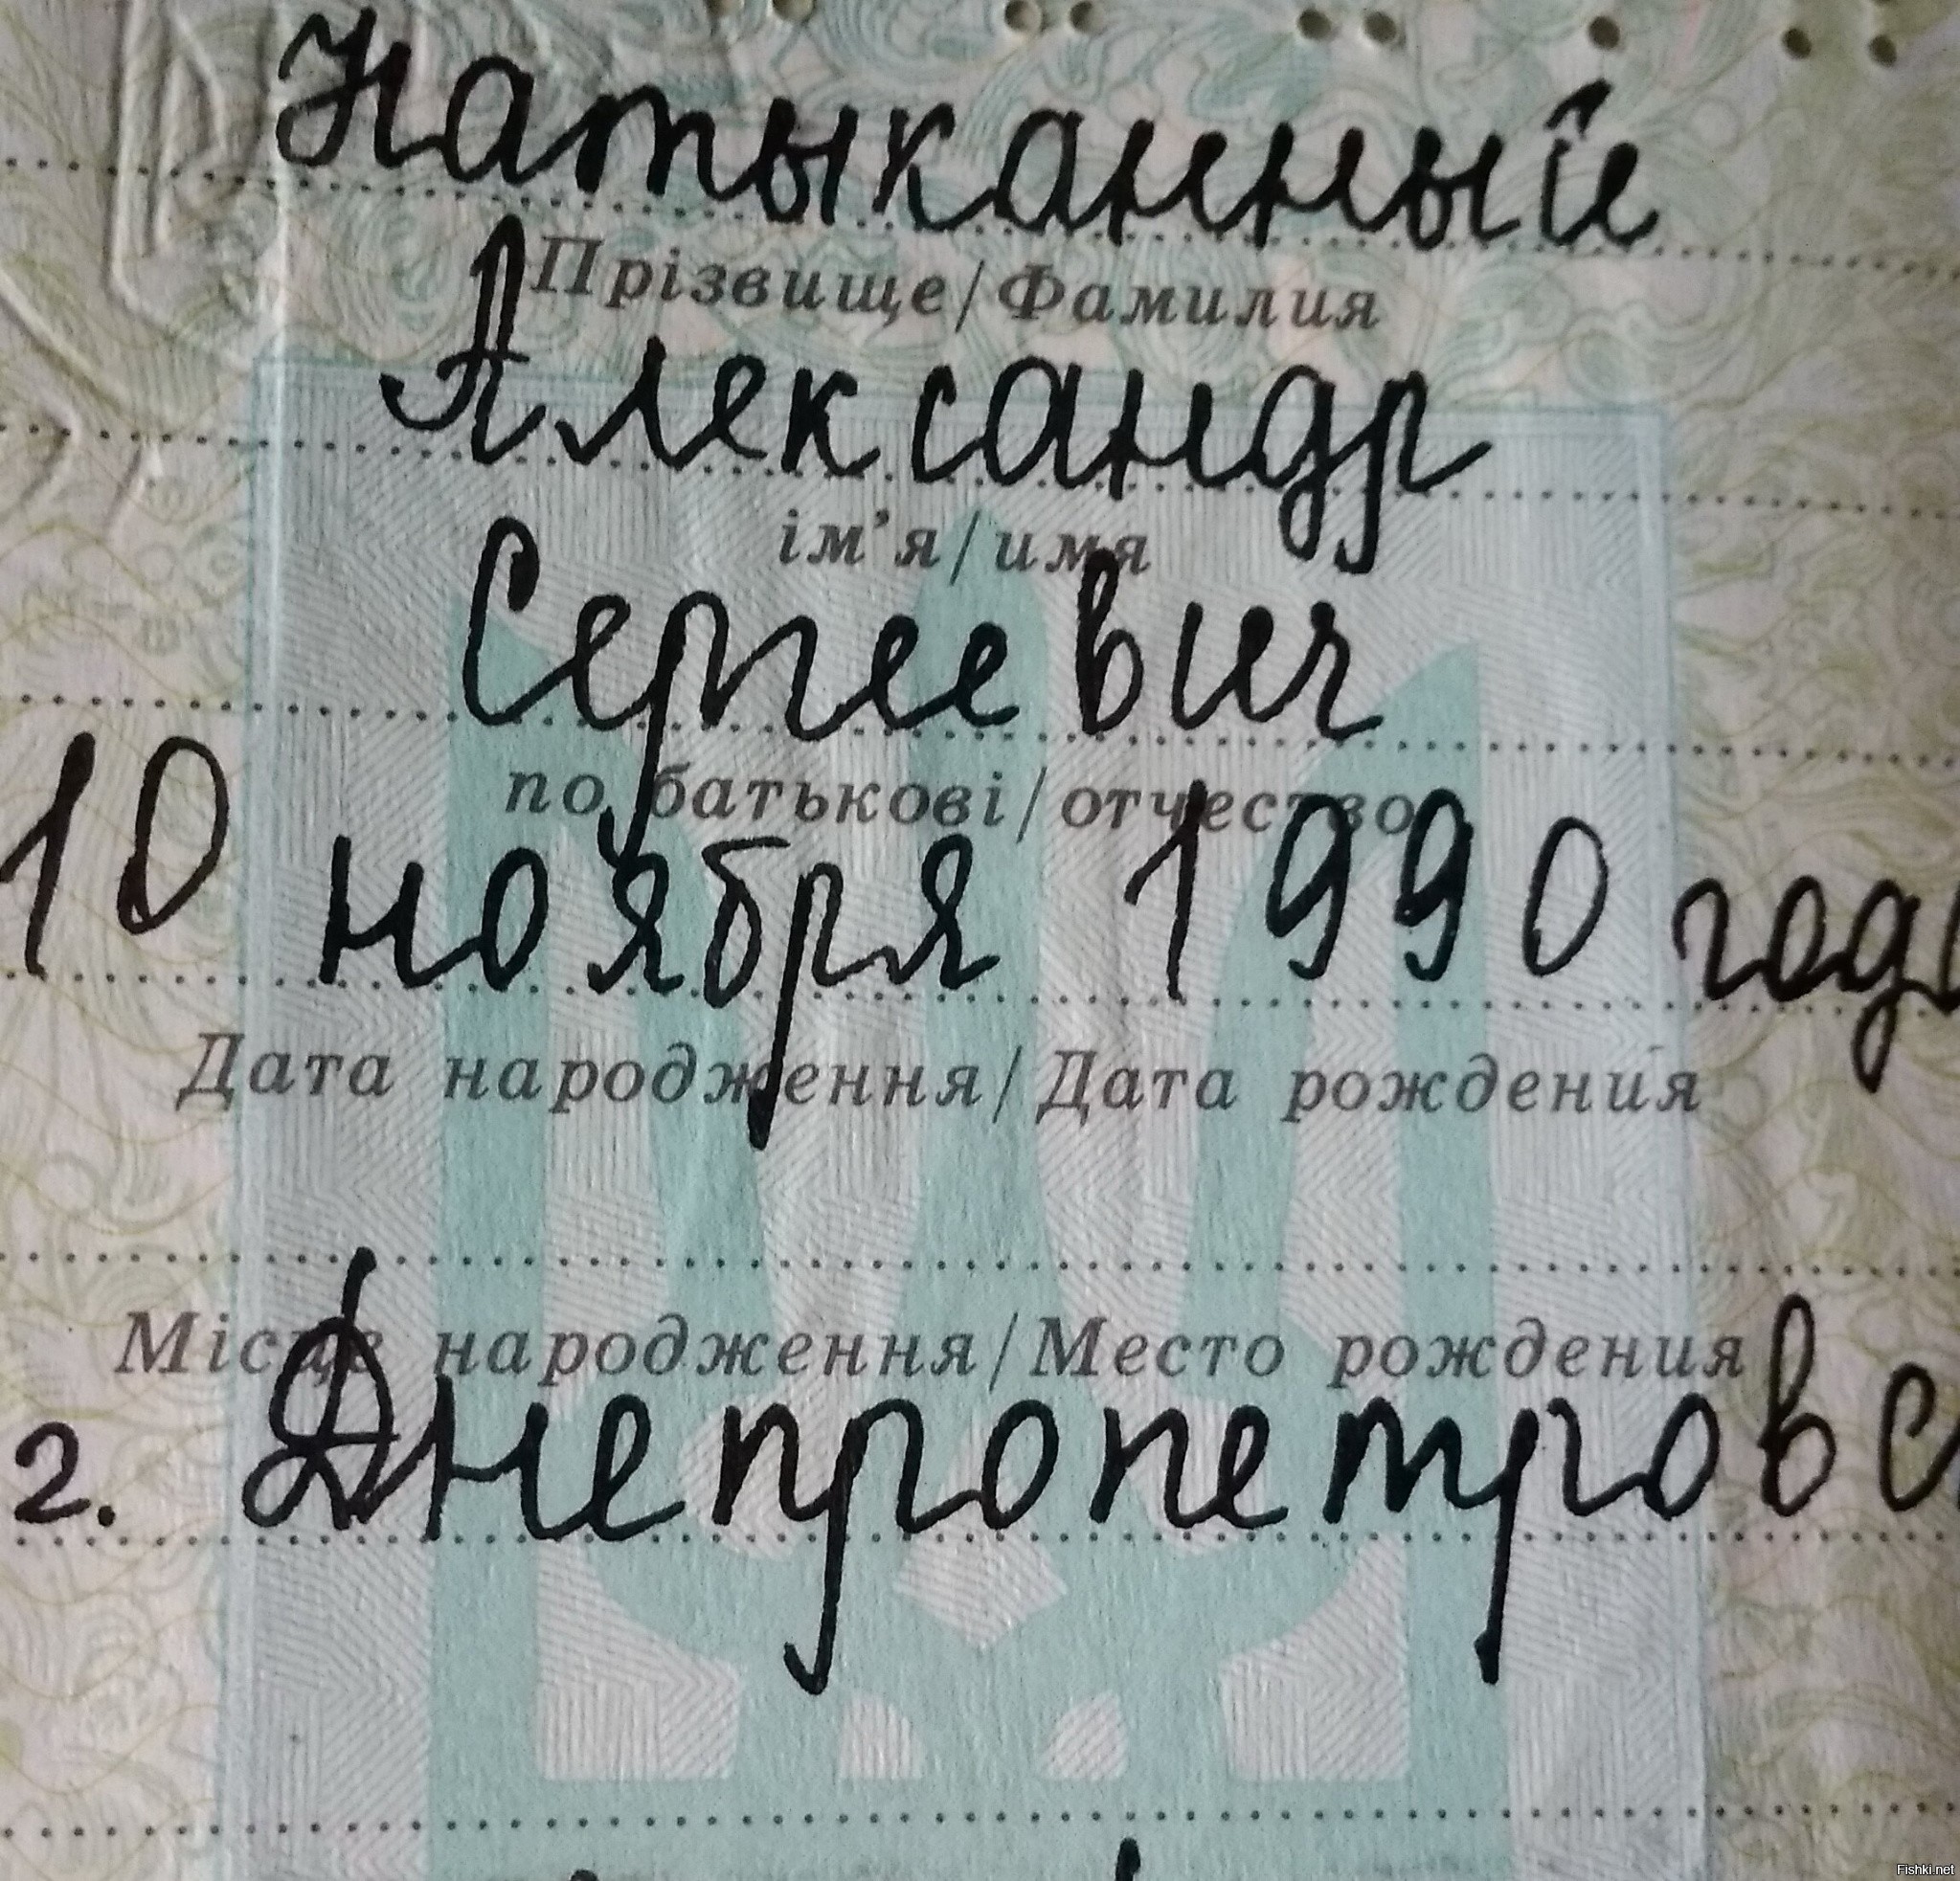 Натыканный
Прізвище/Фамилия
Александр
ім’я/имя
Сергеевич
по батькові/отчество
10 ноября 1990 года
Дата народження/Дата рождения
Місце народження/Место рождения
г. Днепропетровс
Fishki.net